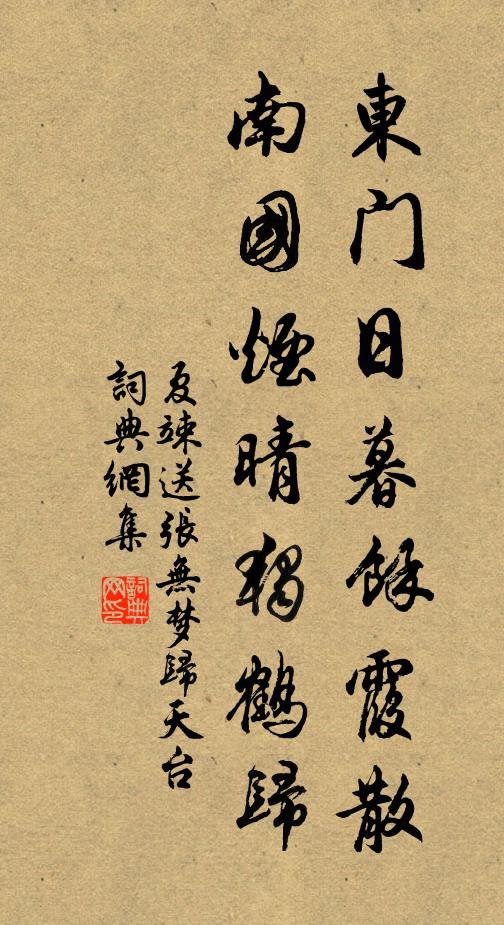 東门日暮餘霞散
南國煙晴獨鶴歸
夏竦送張無梦歸天台
詞典網集
詞典网印